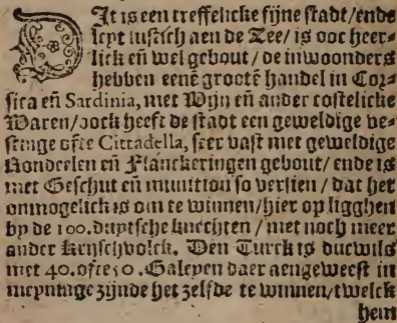 Dit is een treffelicke fijne stadt/ende
leyt lustich aen de Zee/is ooc heer-
lick eñ wel gebout/de inwoonders
hebben eenē grootē handel in Cor-
sica eñ Sardinia, met Wijn eñ ander costelicke
Waren/oock heeft de stadt een geweldige ve-
stinge ofte Cittadella, seer vast met geweldige
Rondeelen eñ Flanckeringen gebout/ende is
met Geschut eñ munition so versien/dat het
onmogelick is om te winnen/hier op ligghen
by de 100. duytsche knechten/met noch meer
ander Krijschvolck. Den Turck is dicwils
met 40. ofte 50. Galeyen daer aengeweest in
meyninge zijnde het zelfde te winnen/twelck
hem